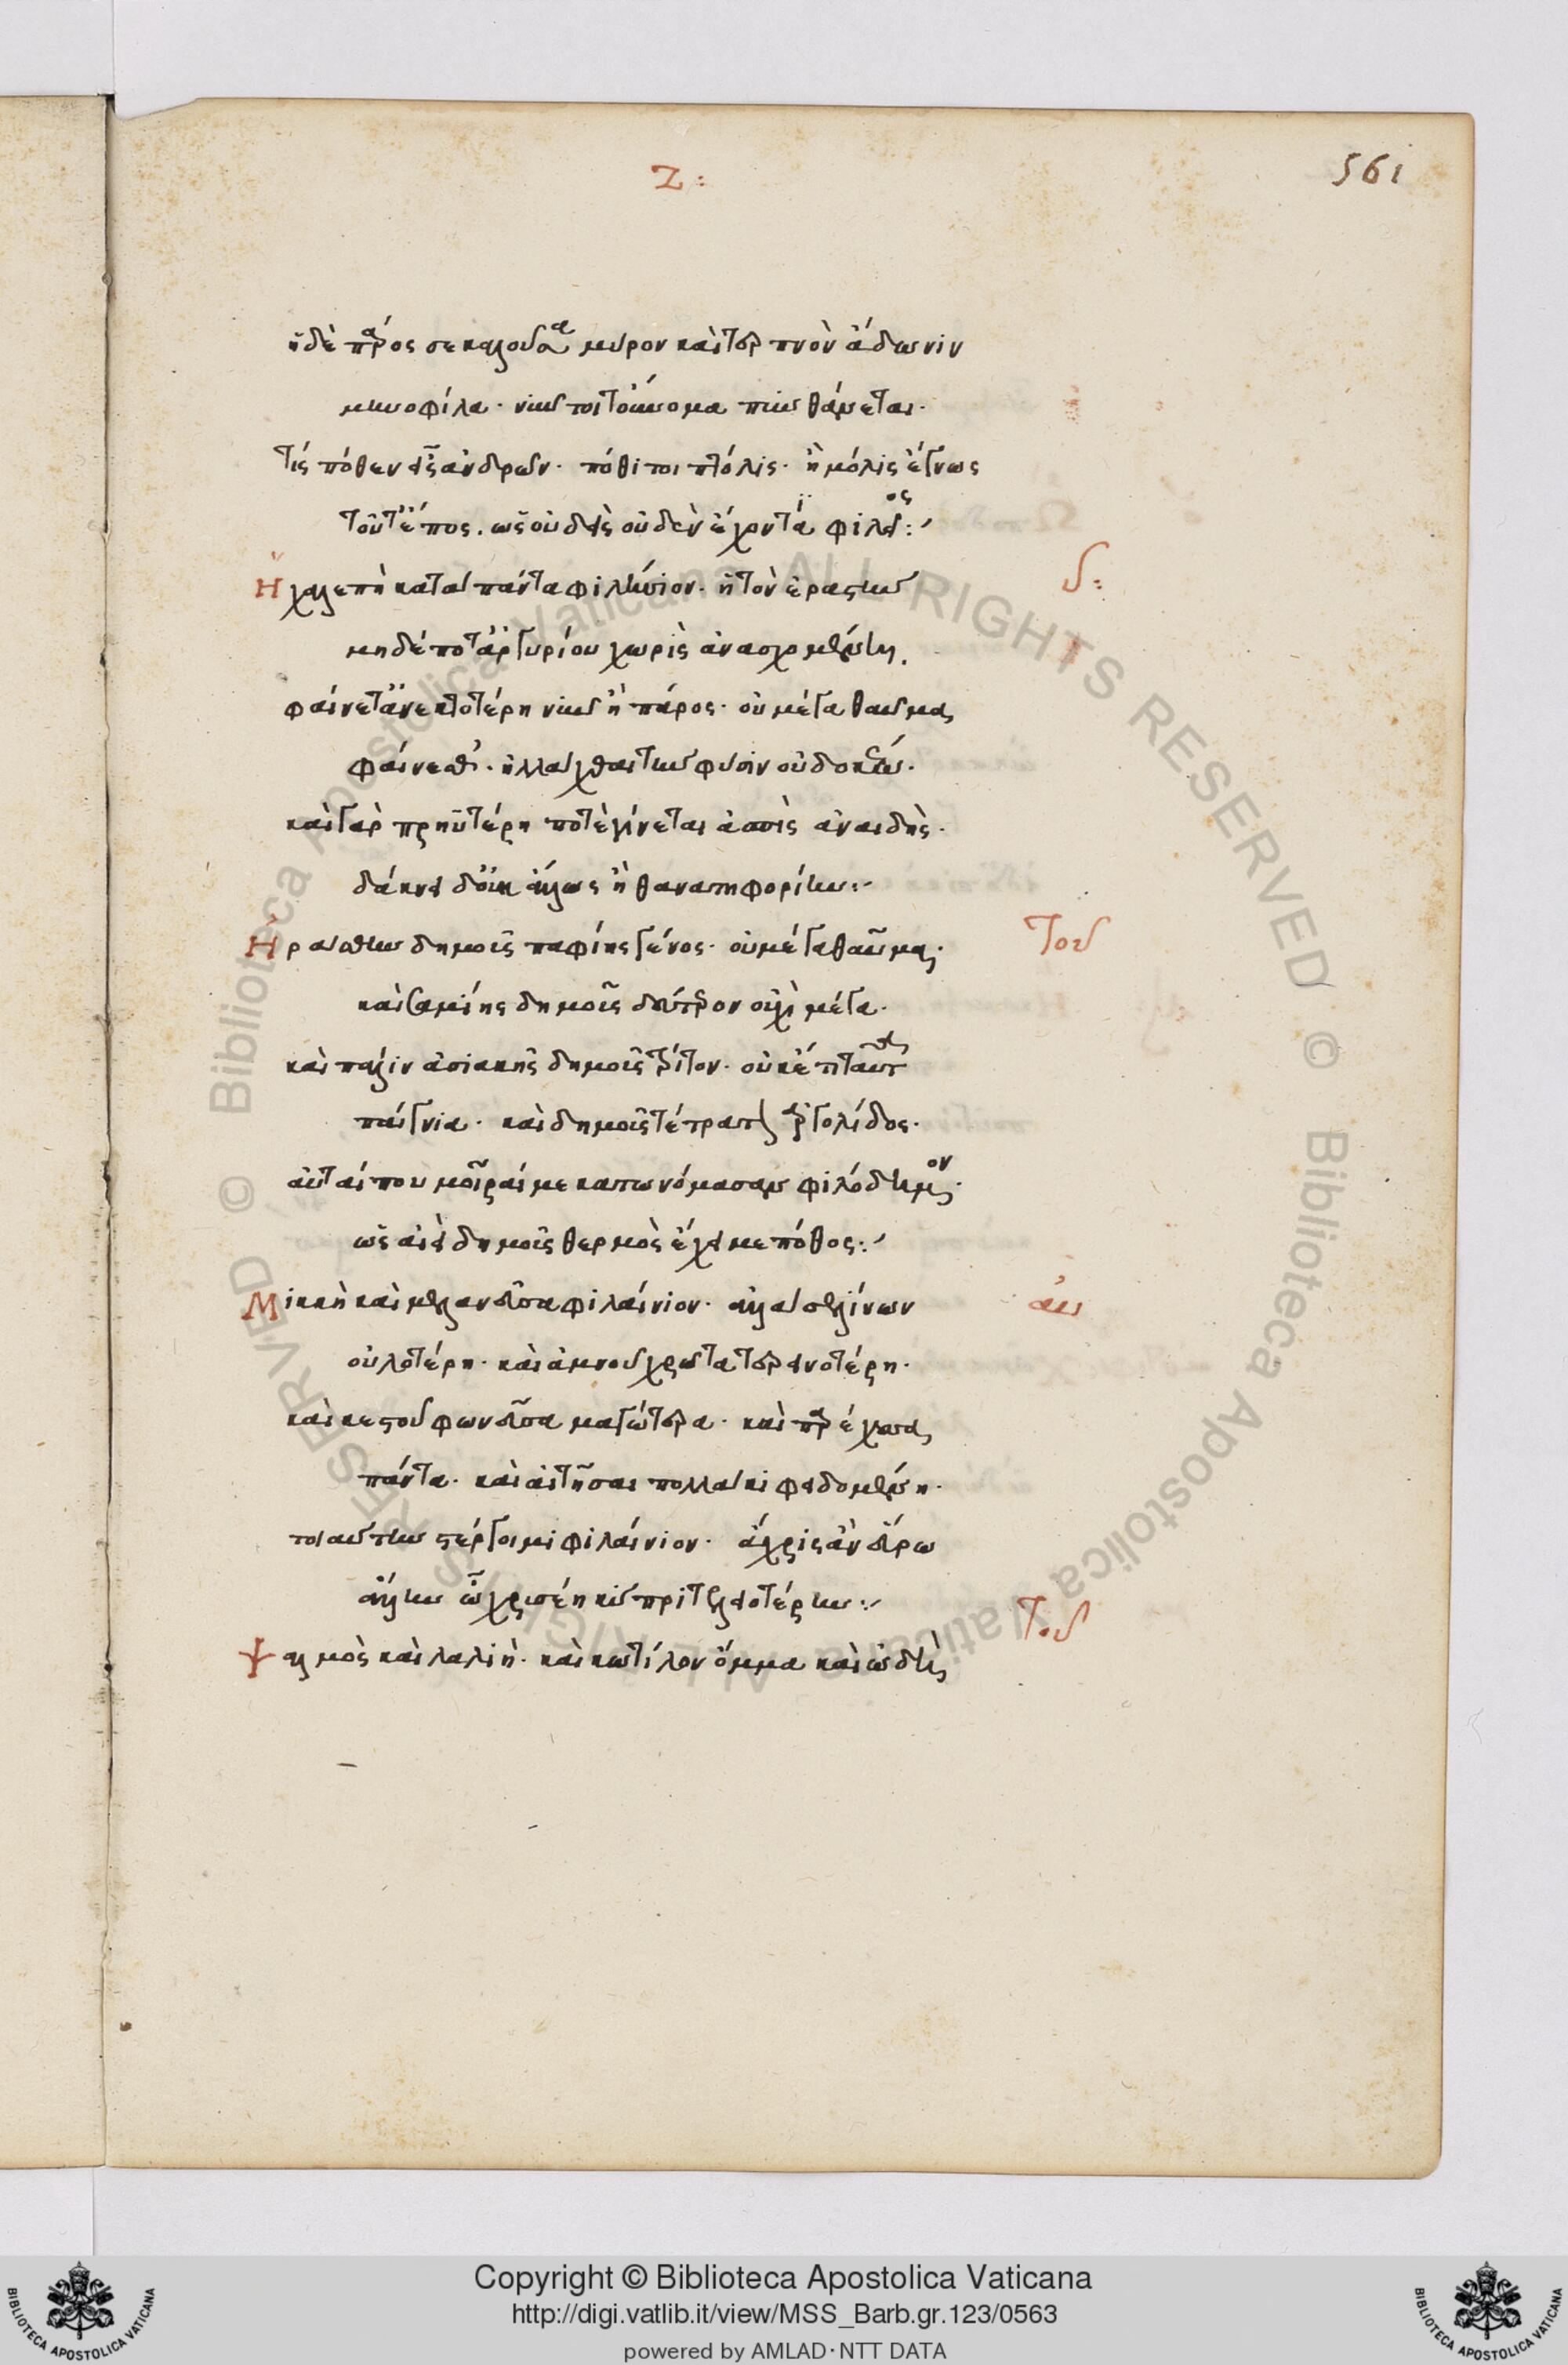 Ζ:
561
ἡ δὲ πάρος σε καλοῦσα μύρον καὶ τερπνὸν ἄδωνιν
μηνοφίλα. νῦν τοι τοὔνομα πυνθάνεται.
τίς πόθεν εἶς ἀνδρῶν. πόθι τοι πτόλις. ἦ μόλις ἔγνως
τοῦτ' ἔπος. ὡς οὐδεὶς οὐδὲν ἔχοντι φίλος:
Ἡ χαλεπὴ κατὰ πάντα φιλήσιον. ἡ τὸν ἐραστὴν
μηδέποτ' ἀργυρίου χωρὶς ἀνασχομένη.
φαίνετ' ἀνεκτοτέρη νῦν ἢ πάρος. οὐ μέγα θαῦμα
φαίνεσθ'. ἠλλάχθαι τὴν φύσιν οὐ δοκέω.
καὶ γὰρ πρηϋτέρη ποτὲ γίνεται ἀσπὶς ἀναιδής.
δάκνει δ' οὐκ ἄλλως ἢ θανατηφορίην:
Ἠράσθην δημοῦς παφίης γένος. οὐ μέγα θαῦμα.
καὶ σαμίης δημοῦς δεύτερον οὐχὶ μέγα.
καὶ πάλιν ἀσιακῆς δημοῦς τρίτον. οὐκέτι ταῦτα
παίγνια. καὶ δημοῦς τέτρατον ἀργολίδος.
αὐταί που μοῖραί με κατωνόμασαν φιλόδημον.
ὡς αἰεὶ δημοῦς θερμὸς ἔχει με πόθος:
Μικκὴ καὶ μελανεῦσα φιλαίνιον. ἀλλὰ σελίνων
οὐλοτέρη. καὶ ἀμνοῦ χρῶτα τερεινοτέρη.
καὶ κεστοῦ φωνεῦσα μαγώτερα. καὶ παρέχουσα
πάντα. καὶ αἰτῆσαι πολλάκι φειδομένη.
τοιαύτην στέργοιμι φιλαίνιον. ἄχρις ἂν εὕρω
ἄλλην ὦ χρυσέη κύπρι τελειοτέρην:
Ψαλμὸς καὶ λαλιὴ. καὶ κωτίλον ὄμμα καὶ ᾠδὴ
τοῦ
τοῦ
Copyright © Biblioteca Apostolica Vaticana
http://digi.vatlib.it/view/MSS_Barb.gr.123/0563
powered by AMLAD·NTT DATA
BIBLIOTECA APOSTOLICA VATICANA
BIBLIOTECA APOSTOLICA VATICANA
© Biblioteca Apostolica Vaticana ALL RIGHTS RESERVED
© Biblioteca Apostolica Vaticana ALL RIGHTS RESERVED